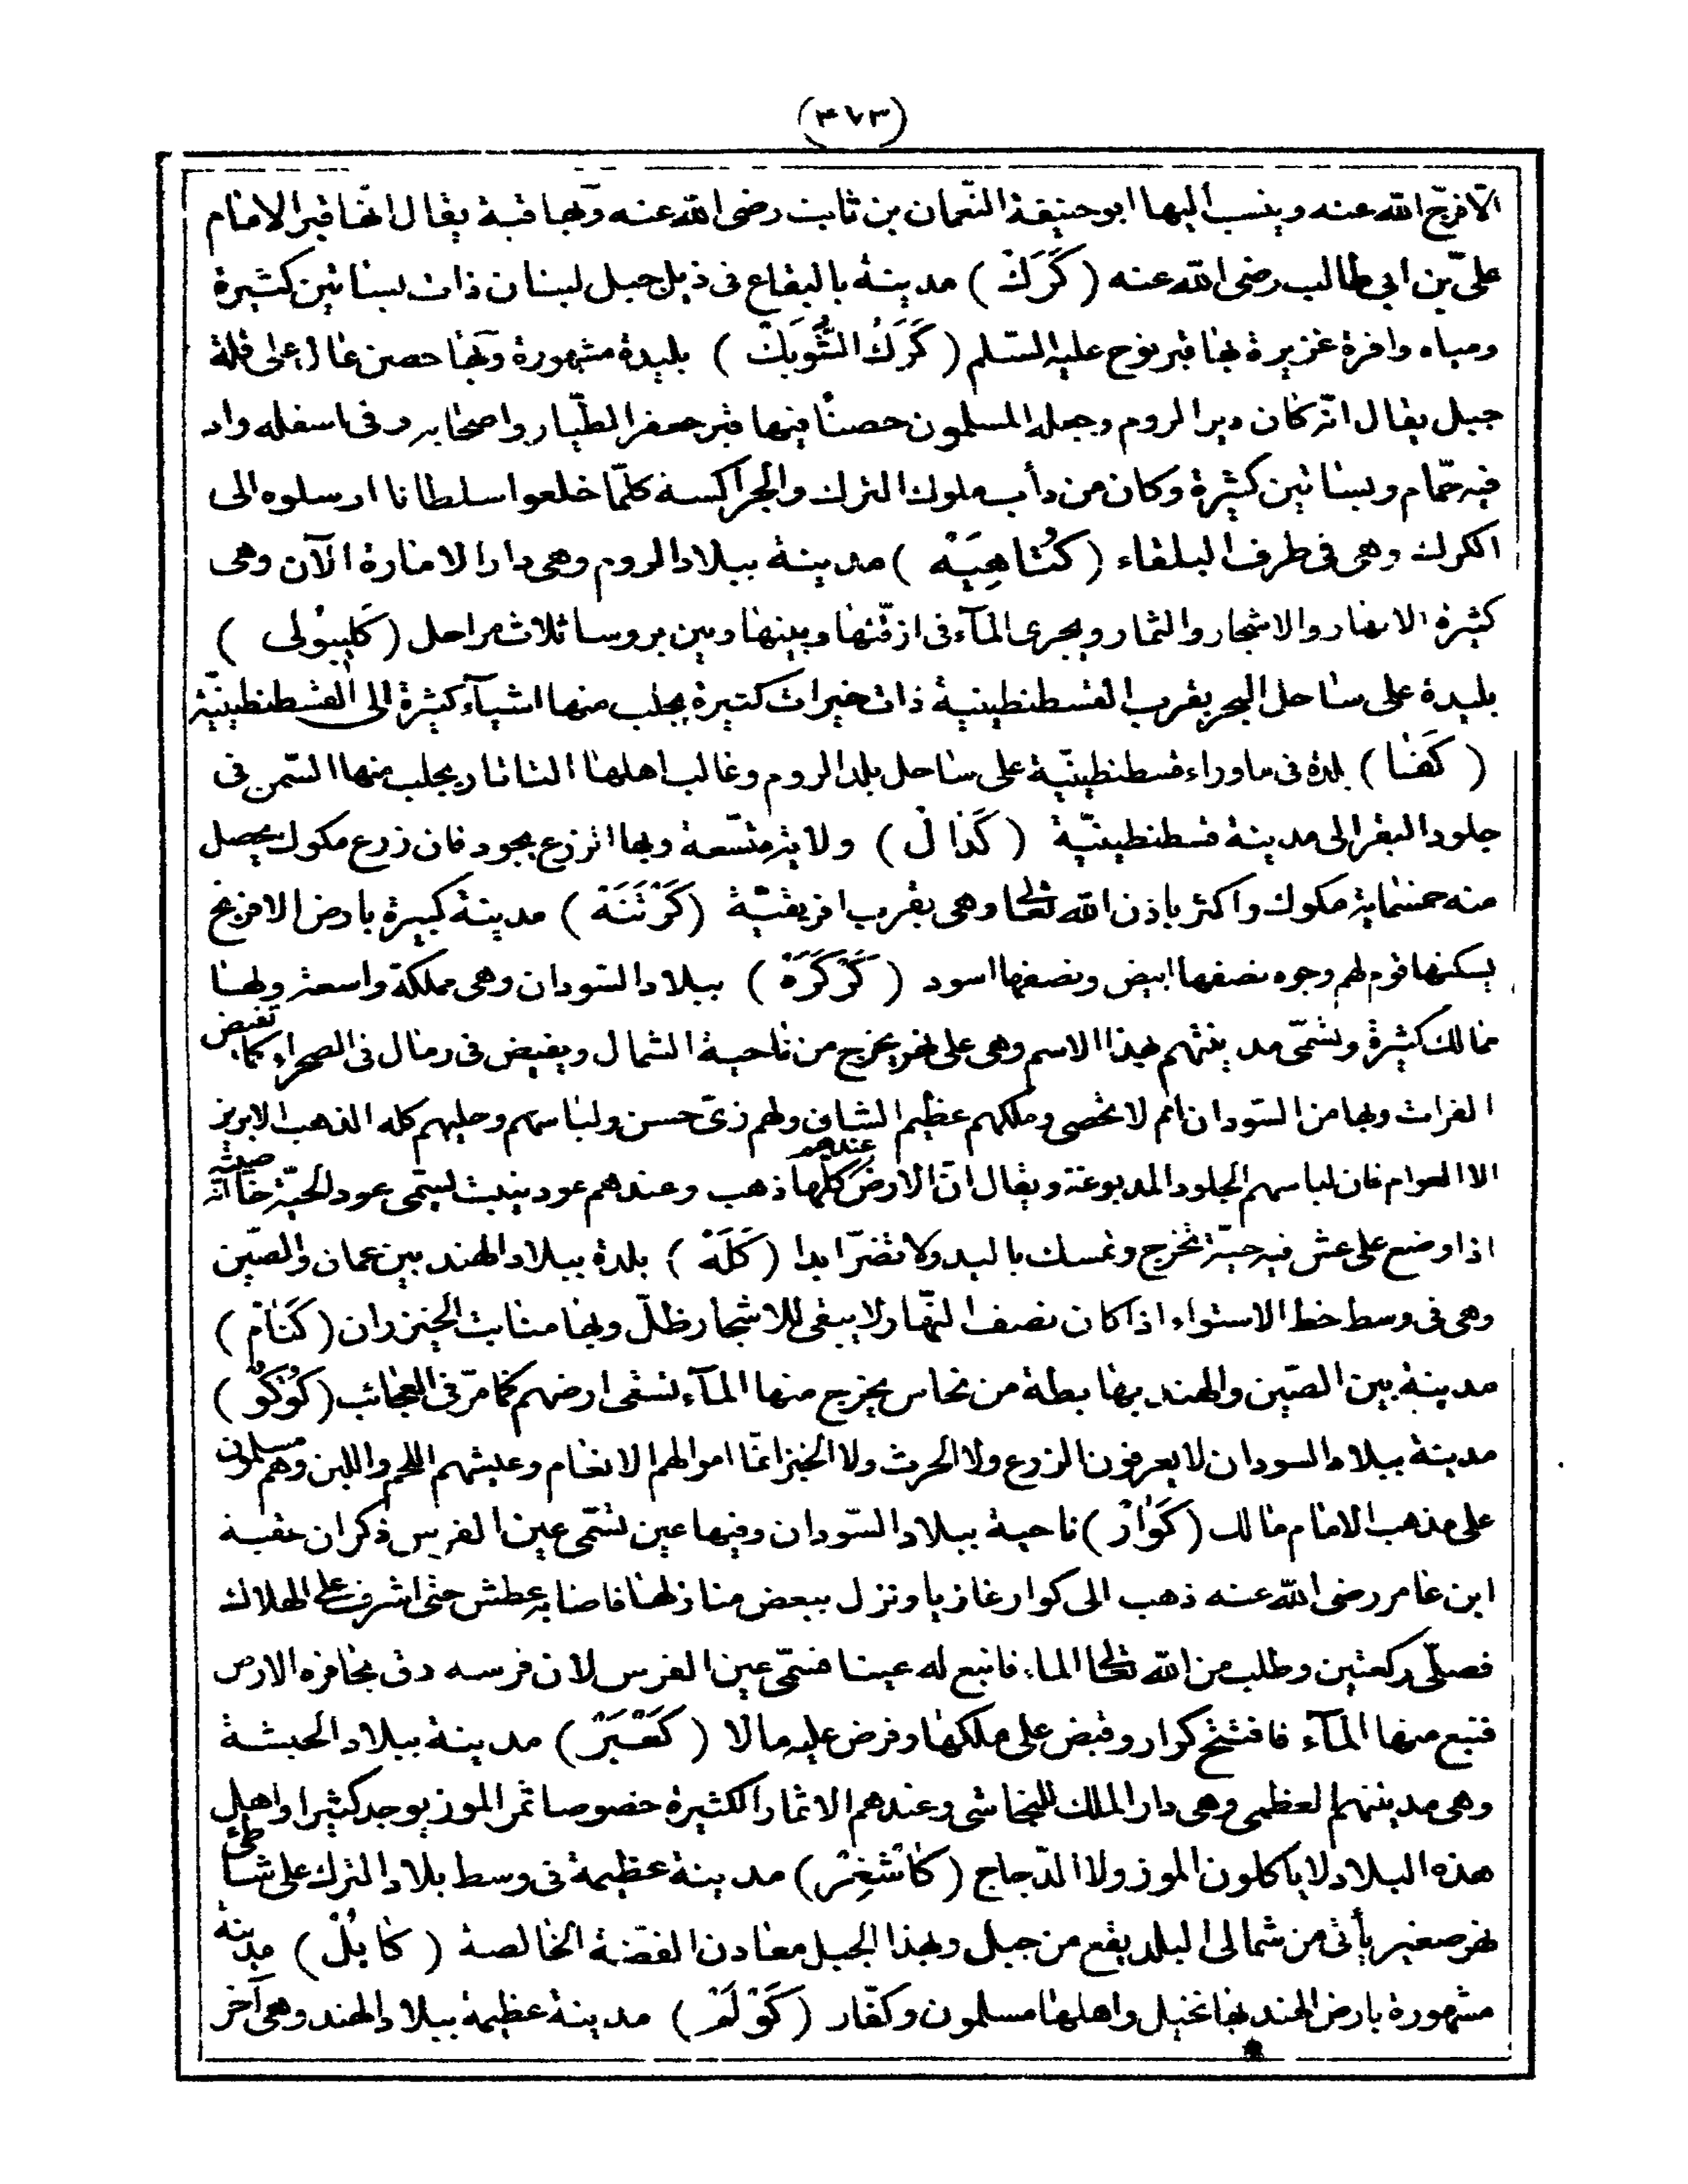 (٣٧٣)
الّا فرّج الله عنه وينسب اليها ابو حنيفة النّعمان بن ثابت رضى الله عنه وبها قبة يقال انها قبر الامام
علىّ بن ابي طالب رضى الله عنه (كَرَكْ) مدينة بالبقاع فى ذيل جبل لبنان ذات بساتين كثيرة
ومياه وافرة غزيرة بها قبر نوح عليه السّلم (كَرَكُ الشَّوبَكْ) بليدة مشهورة وبها حصن عال على قلة
جبل يقال انّه كان ديرا لروم وجعله المسلمون حصنًا فيها قبر جعفر الطيّار واصحابه وفى اسفله واد
فيه حمّام وبساتين كثيرة وكان من دأب ملوك الترك والجراكسة كلّما خلعوا سلطانا ارسلوه الى
الكرك وهى فى طرف البلقاء (كُتَاهِيَهْ) مدينة ببلاد الروم وهى دار الامارة الآن وهى
كثيرة الانهار والاشجار والثمار ويجرى المآء فى ازقّتها وبينها وبين بروسا ثلاث مراحل (كَلِيبُولى)
بليدة على ساحل البحر بقرب القسطنطينية ذات خيرات كثيرة يجلب منها اشيآء كثيرة الى القسطنطينيّة
(كَفَا) بلدة فى ما وراء قسطنطينيّة على ساحل بلد الروم وغالب اهلها التاتار يجلب منها السّمن فى
جلود البقر الى مدينة قسطنطينيّة (كَدَالْ) ولاية متّسعة وبها الزرع يجود فان زرع مكوك يحصل
منه خمسماية مكوك واكثر باذن الله تعالى وهى بقرب افريقيّة (كَرْثَنَهْ) مدينة كبيرة بارض الافرنج
يسكنها قوم لهم وجوه نصفها ابيض ونصفها اسود (كَرْكَرَهْ) ببلاد السّودان وهى مملكة واسعة ولها
ممالك كثيرة وتسمّى مدينتهم بهذا الاسم وهى على نهر يخرج من ناحية الشمال ويغيض فى رمال فى الصحراء كما تغيض
الفرات وبها من السّودان امم لا تحصى وملكهم عظيم الشان ولهم زىّ حسن ولباسهم وحليهم كله الذهب الابريز
الا العوام فان لباسهم الجلود المدبوغة ويقال انّ الارض عندهم كلّها ذهب وعندهم عود ينبت يسمى عود الحيّة خاصيته انّه
اذا وضع على عش فيه حيّة تخرج وتمسك باليد ولا تضرّ ابدا (كَلَهْ) بلدة ببلاد الهند بين عمان والصّين
وهى فى وسط خط الاستواء اذا كان نصف النّهار لا يبقى للاشجار ظلّ وبها منابت الخيزران (كَنَامْ)
مدينة بين الصّين والهند بها بطة من نحاس يخرج منها المآء تسقى ارضهم كما مرّ فى العجائب (كُوكُو)
مدينة ببلاد السودان لا يعرفون الزرع ولا الحرث ولا الخبز انمّا اموالهم الانعام وعيشهم اللحم واللبن وهم مسلمون
على مذهب الامام مالك (كَوَارْ) ناحية ببلاد السّودان وفيها عين تسمّى عين الفرس ذكر ان عقبة
ابن عامر رضى الله عنه ذهب الى كوار غازيا ونزل ببعض منازلها فاصابه عطش حتى اشرف على الهلاك
فصلّى ركعتين وطلب من الله تعالى الماء فانبع له عينا فسمّى عين الفرس لان فرسه دق بحافره الارض
فنبع منها المآء فافتتح كوار وقبض على ملكها وفرض عليه مالا (كَعْبَرْ) مدينة ببلاد الحبشة
وهى مدينتهم العظمى وهى دار الملك للنجاشى وعندهم الاثمار الكثيرة خصوصا ثمر الموز يوجد كثيرا واهل
هذه البلاد لا ياكلون الموز ولا الدّجاج (كَاشْغِرْ) مدينة عظيمة فى وسط بلاد الترك على شاطئ
نهر صغير يأتى من شمالى البلد يقع من جبل وبهذا الجبل معادن الفضّة الخالصة (كَابُلْ) مدينة
مشهورة بارض الهند بها نخيل واهلها مسلمون وكفّار (كَوْلَمْ) مدينة عظيمة ببلاد الهند وهى آخر